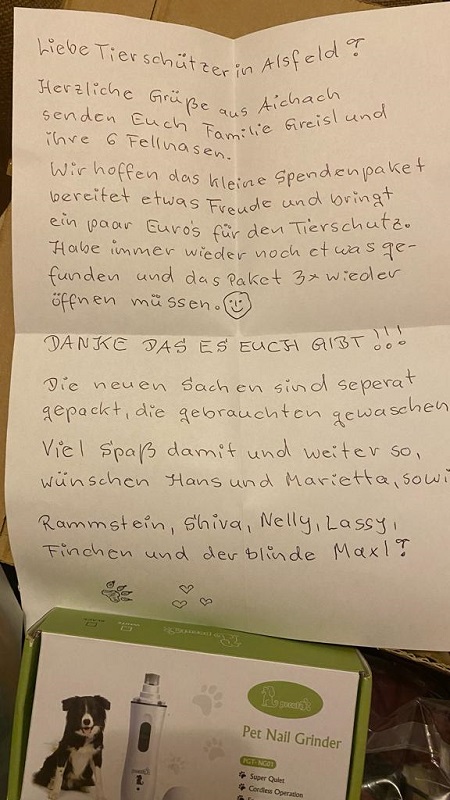 Liebe Tierschützer in Alsfeld!
Herzliche Grüße aus Aichach
senden Euch Familie Greisl und
ihre 6 Fellnasen.
Wir hoffen das kleine Spendenpaket
bereitet etwas Freude und bringt
ein paar Euro's für den Tierschutz.
Habe immer wieder noch etwas ge-
funden und das Paket 3x wieder
öffnen müssen.
DANKE DAS ES EUCH GIBT!!!
Die neuen Sachen sind seperat
gepackt, die gebrauchten gewaschen
Viel Spaß damit und weiter so,
wünschen Hans und Marietta, sowi
Rammstein, Shiva, Nelly, Lassy,
Finchen und der blinde Maxl!
Pet Nail Grinder
PGT-NG01
Super Quiet
Cordless Operation